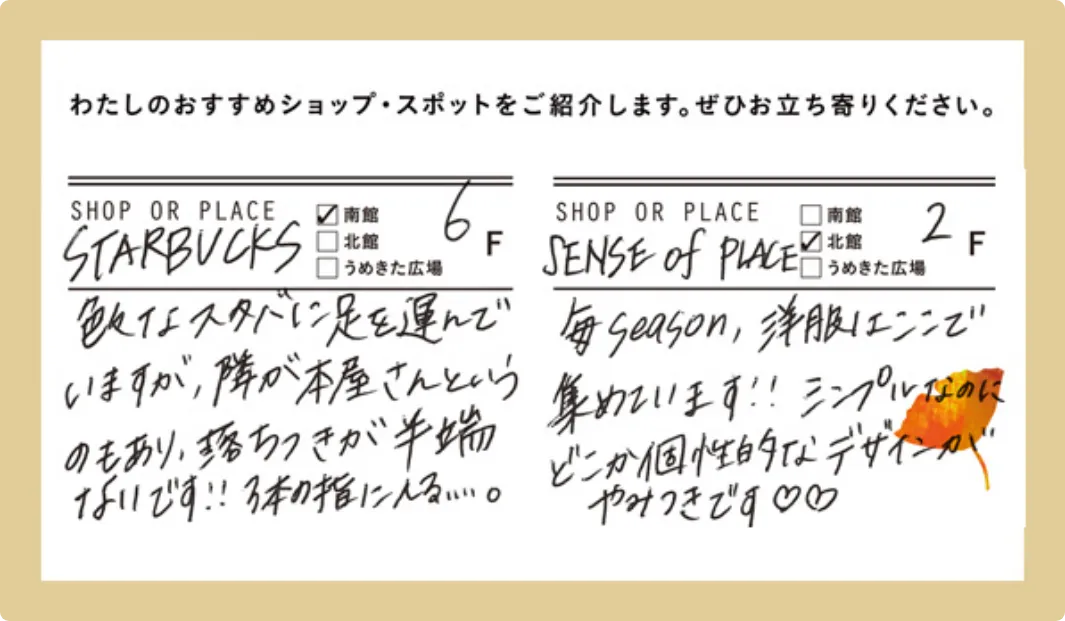 わたしのおすすめショップ・スポットをご紹介します。ぜひお立ち寄りください。
SHOP OR PLACE
STARBUCKS
南館
北館
うめきた広場
6F
色々なスタバに足を運んで
いますが、隣が本屋さんという
のもあり、落ちつきが半端
ないです!! 3本の指に入る....。
SHOP OR PLACE
SENSE of PLACE
南館
北館
うめきた広場
2F
毎season, 洋服はここで
集めています!! シンプルなのに
どこか個性的なデザインが
やみつきです♡♡